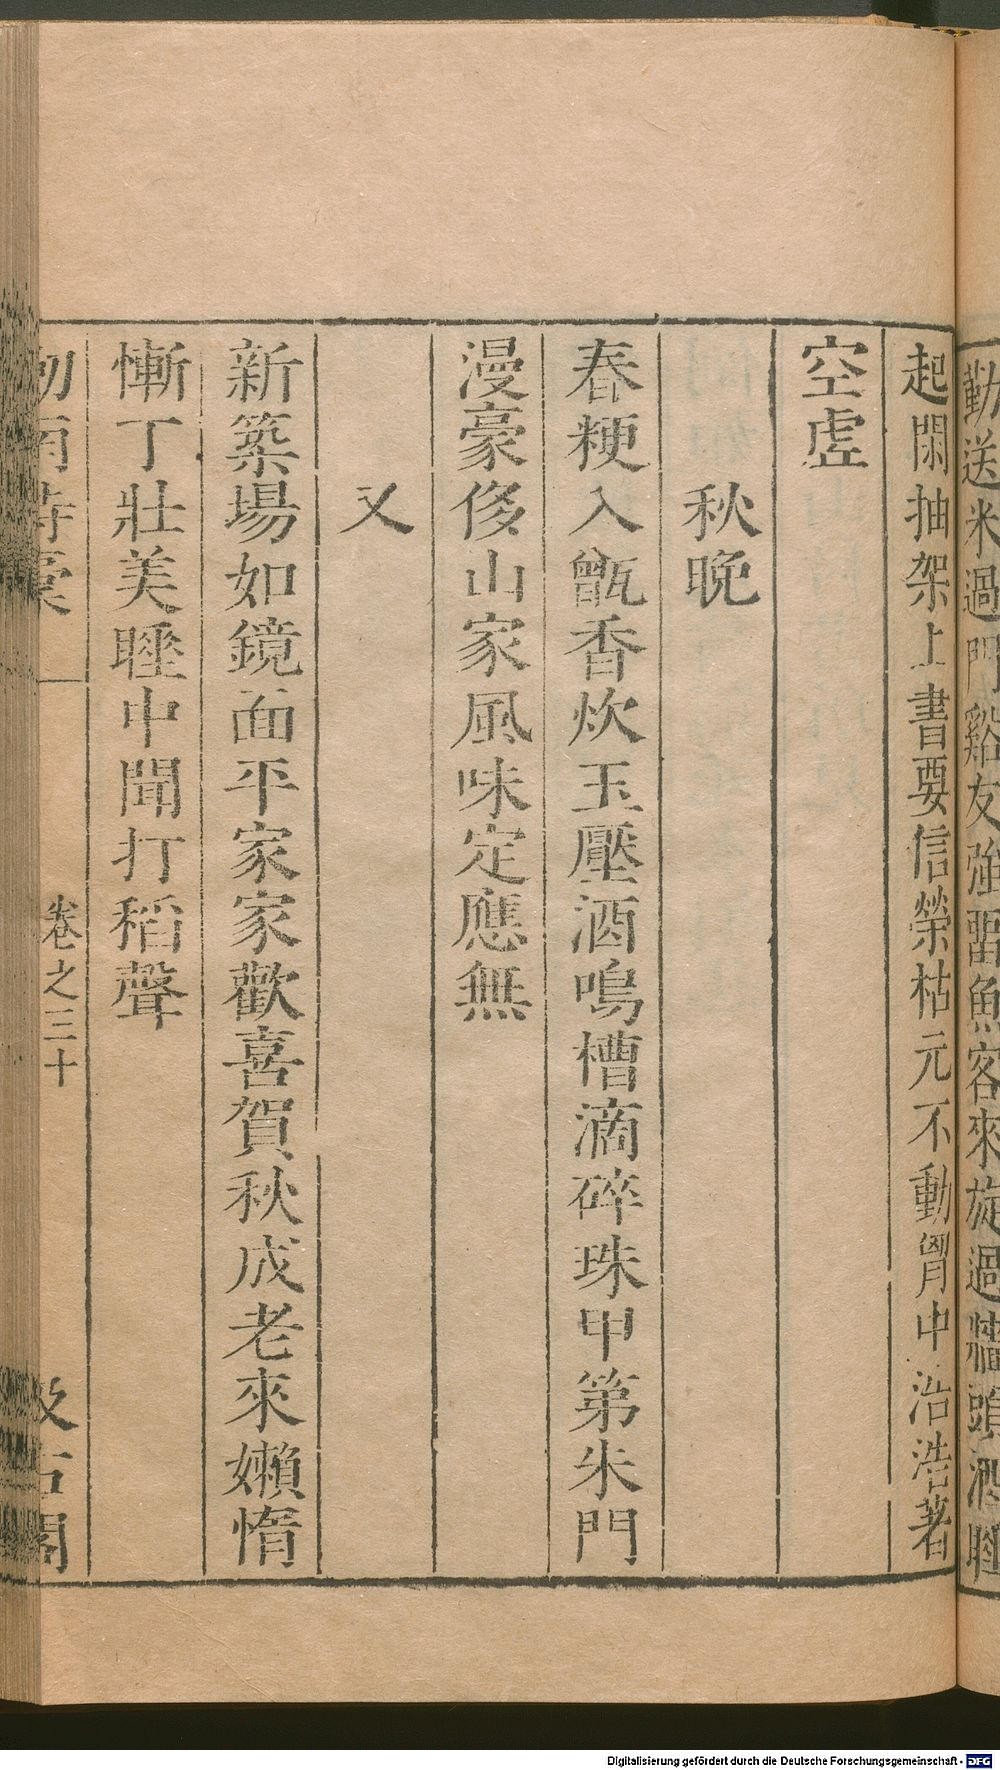 勤送米過門谿友強留魚客來旋過牆頭酒睡
起閑抽架上書要信榮枯元不動胷中治浩著
空虗
秋晚
舂粳入甑香炊玉壓酒鳴槽滴碎珠甲第朱門
漫豪侈山家風味定應無
又
新築場如鏡面平家家歡喜賀秋成老來嬾惰
慚丁壯美睡中聞打稻聲
劒南詩稾 卷之三十 汲古閣
Digitalisierung gefördert durch die Deutsche Forschungsgemeinschaft - DFG